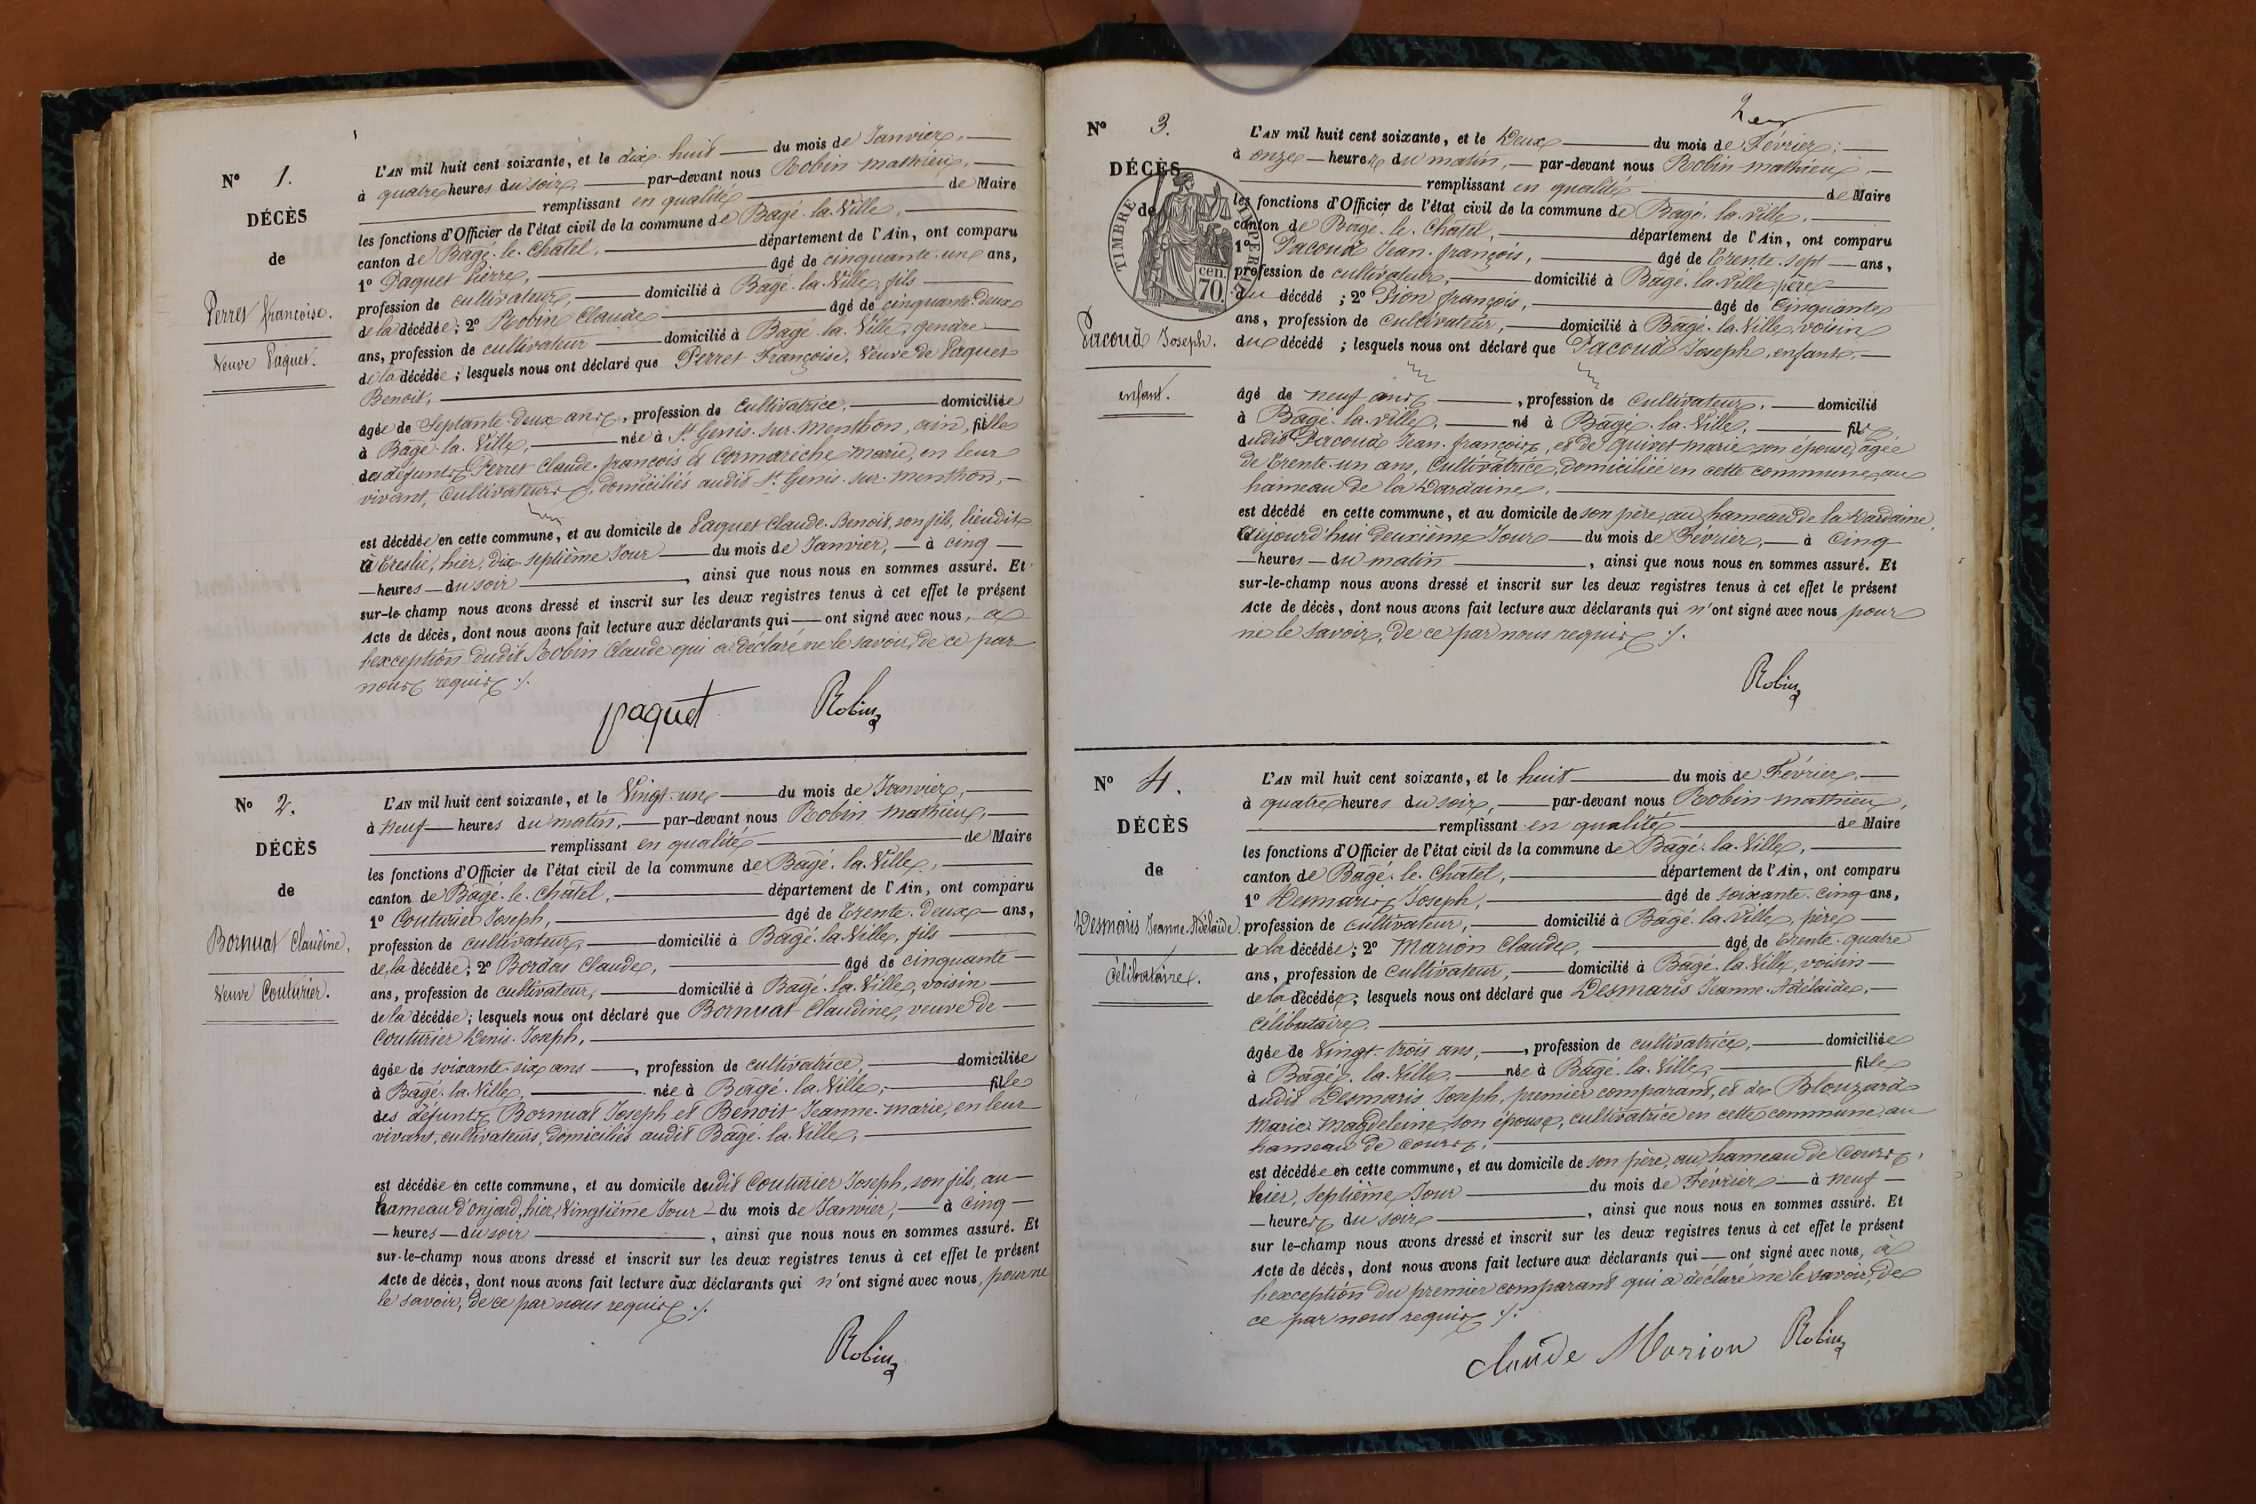 N° 1.
DÉCÈS
de
Perret françoise.
Veuve Paquet.
L'AN mil huit cent soixante, et le dix-huit du mois de Janvier,
à quatre heures du soir, par-devant nous Robin mathieu,
remplissant en qualité de Maire
les fonctions d'Officier de l'état civil de la commune de Bagé-la-Ville,
canton de Bagé-le-Chatel, département de l'Ain, ont comparu
1° Paquet Pierre, âgé de cinquante-un ans,
profession de cultivateur, domicilié à Bagé-la-Ville, fils
de la décédée; 2° Robin Claude âgé de cinquante-deux
ans, profession de cultivateur domicilié à Bagé-la-Ville, gendre
de la décédée; lesquels nous ont déclaré que Perret Françoise, Veuve de Paquet
Benoit,
âgée de Septante-deux ans, profession de Cultivatrice, domiciliée
à Bagé-la-Ville, née à St Genis-sur-menthon, ain, fille
des défunts Perret Claude-françois et Cormarèche marie, en leur
vivant, cultivateurs, domiciliés audit St Genis-sur-menthon,
est décédée en cette commune, et au domicile de Paquet Claude-Benoit, son fils, lieudit
à hier, dix-septième Jour du mois de Janvier, à cinq
heures du soir, ainsi que nous nous en sommes assuré. Et
sur-le-champ nous avons dressé et inscrit sur les deux registres tenus à cet effet le présent
Acte de décès, dont nous avons fait lecture aux déclarants qui ont signé avec nous, à
l'exception dudit Robin Claude qui a déclaré ne le savoir, de ce par
nous requis ./.
paquet Robin
N° 2.
DÉCÈS
de
Bornuat Claudine,
Veuve Couturier.
L'AN mil huit cent soixante, et le Vingt-un du mois de Janvier,
à neuf heures du matin, par-devant nous Robin mathieu,
remplissant en qualité de Maire
les fonctions d'Officier de l'état civil de la commune de Bagé-la-Ville,
canton de Bagé-le-Châtel, département de l'Ain, ont comparu
1° Couturier Joseph, âgé de Trente-deux ans,
profession de cultivateur, domicilié à Bagé-la-Ville, fils
de la décédée; 2° Bordas Claude, âgé de cinquante
ans, profession de cultivateur, domicilié à Bagé-la-Ville, voisin
de la décédée; lesquels nous ont déclaré que Bornuat Claudine, veuve de
Couturier Denis-Joseph,
âgée de soixante-six ans, profession de cultivatrice, domiciliée
à Bagé-la-Ville, née à Bagé-la-Ville, fille
des défunts Bornuat Joseph et Benoit Jeanne-marie, en leur
vivant, cultivateurs, domiciliés audit Bagé-la-Ville,
est décédée en cette commune, et au domicile dudit Couturier Joseph, son fils, au
hameau d'onjard, hier, Vingtième Jour du mois de Janvier, à cinq
heures du soir, ainsi que nous nous en sommes assuré. Et
sur-le-champ nous avons dressé et inscrit sur les deux registres tenus à cet effet le présent
Acte de décès, dont nous avons fait lecture aux déclarants qui n'ont signé avec nous, pour ne
le savoir, de ce par nous requis ./.
Robin
2
N° 3.
DÉCÈS
de
TIMBRE IMPERIAL
cen. 70.
Pacoud Joseph.
enfant.
L'AN mil huit cent soixante, et le Deux du mois de Février,
à onze heures du matin, par-devant nous Robin mathieu,
remplissant en qualité de Maire
les fonctions d'Officier de l'état civil de la commune de Bagé-la-Ville,
canton de Bagé-le-Chatel, département de l'Ain, ont comparu
1° Pacoud Jean-françois, âgé de Trente-sept ans,
profession de cultivateur, domicilié à Bagé-la-Ville, père
du décédé; 2° Pion françois, âgé de Cinquante
ans, profession de Cultivateur, domicilié à Bagé-la-Ville, voisin
du décédé; lesquels nous ont déclaré que Pacoud Joseph, enfant,
âgé de neuf ans, profession de cultivateur, domicilié
à Bagé-la-Ville, né à Bagé-la-Ville, fils
dudit Pacoud Jean-françois, et de Guivet marie son épouse, âgée
de Trente-un ans, Cultivatrice, domiciliée en cette commune, au
hameau de la Dardaine,
est décédé en cette commune, et au domicile de son père, au hameau de la Dardaine,
Aujourd'hui deuxième Jour du mois de Février, à Cinq
heures du matin, ainsi que nous nous en sommes assuré. Et
sur-le-champ nous avons dressé et inscrit sur les deux registres tenus à cet effet le présent
Acte de décès, dont nous avons fait lecture aux déclarants qui n'ont signé avec nous pour
ne le savoir, de ce par nous requis ./.
Robin
N° 4.
DÉCÈS
de
Desmaris Jeanne-Adélaïde.
Célibataire.
L'AN mil huit cent soixante, et le huit du mois de Février,
à quatre heures du soir, par-devant nous Robin mathieu,
remplissant en qualité de Maire
les fonctions d'Officier de l'état civil de la commune de Bagé-la-Ville,
canton de Bagé-le-Chatel, département de l'Ain, ont comparu
1° Desmaris Joseph, âgé de soixante-cinq ans,
profession de cultivateur, domicilié à Bagé-la-Ville, père
de la décédée; 2° Marion Claude, âgé de Trente-quatre
ans, profession de Cultivateur, domicilié à Bagé-la-Ville, voisin
de la décédée; lesquels nous ont déclaré que Desmaris Jeanne-Adélaïde,
célibataire,
âgée de Vingt-trois ans, profession de cultivatrice, domiciliée
à Bagé-la-Ville, née à Bagé-la-Ville, fille
dudit Desmaris Joseph, premier comparant, et de Blouzard
Marie-Magdeleine, son épouse, cultivatrice en cette commune, au
hameau de cours,
est décédée en cette commune, et au domicile de son père, au hameau de Cours,
hier, septième Jour du mois de Février à neuf
heures du soir, ainsi que nous nous en sommes assuré. Et
sur le-champ nous avons dressé et inscrit sur les deux registres tenus à cet effet le présent
Acte de décès, dont nous avons fait lecture aux déclarants qui ont signé avec nous, à
l'exception du premier comparant qui a déclaré ne le savoir, de
ce par nous requis ./.
claude Marion Robin